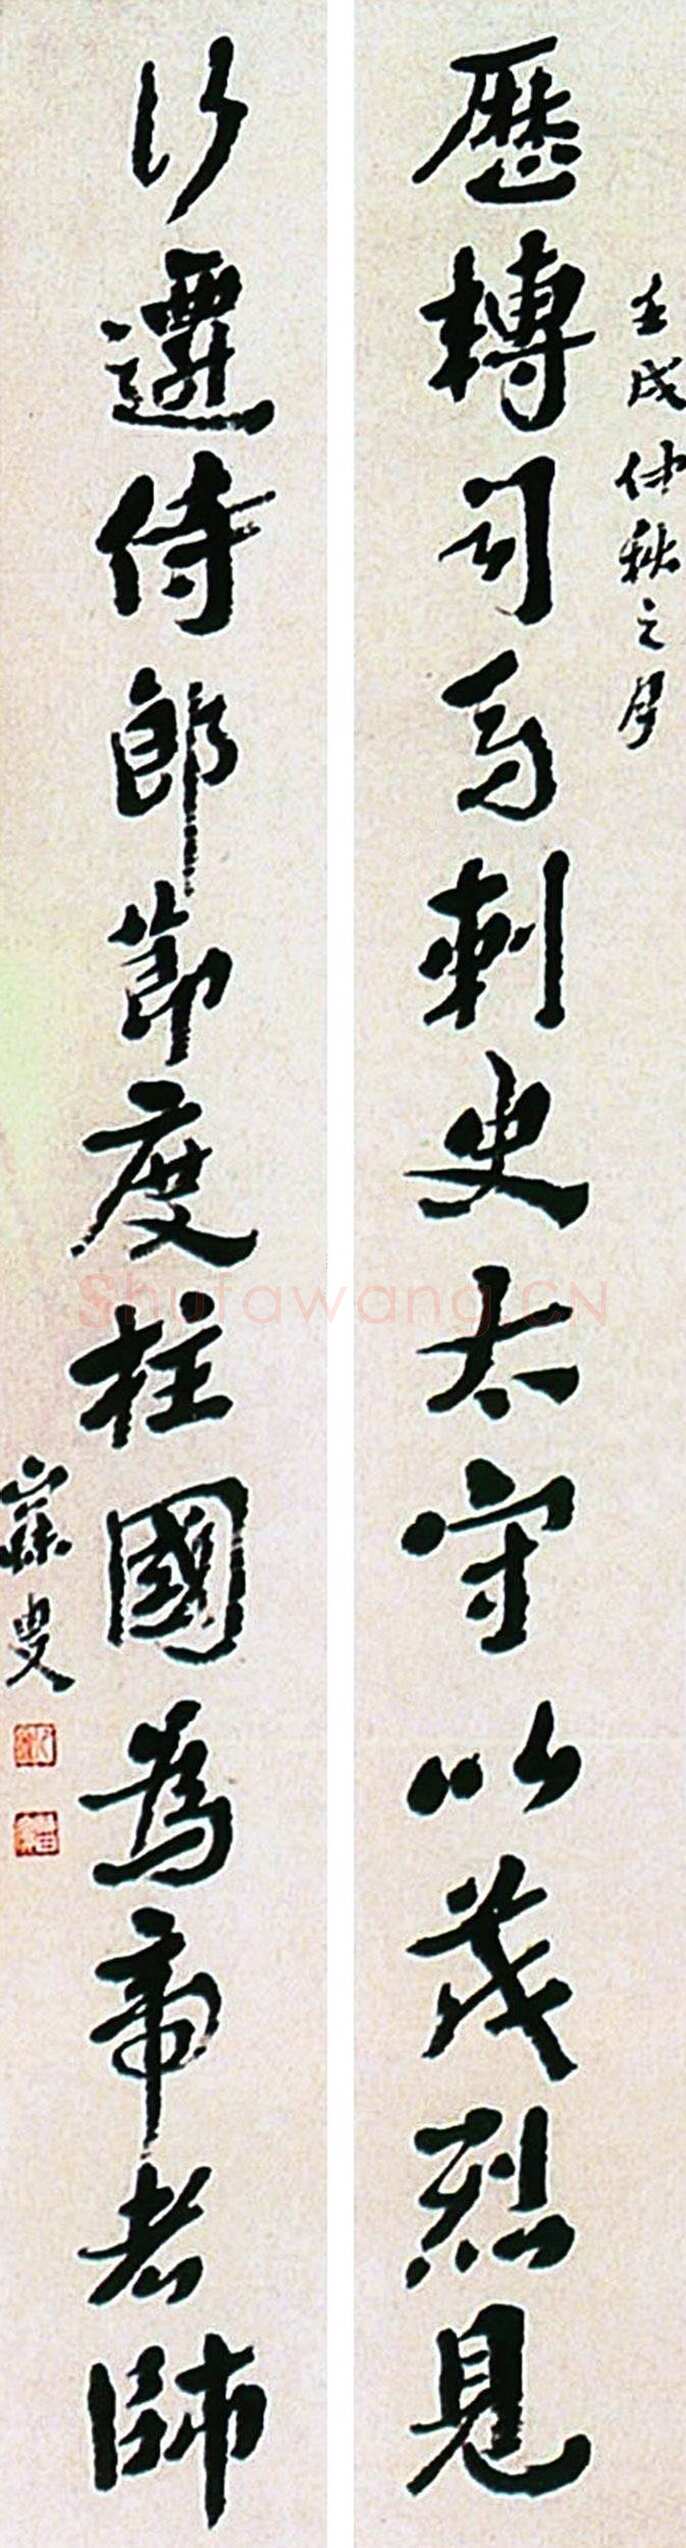 壬戌仲秋之月
歷轉司馬刺史太守以茂烈見
行遷侍郎節度柱國為帝者師
寐叟
Shufawang.CN